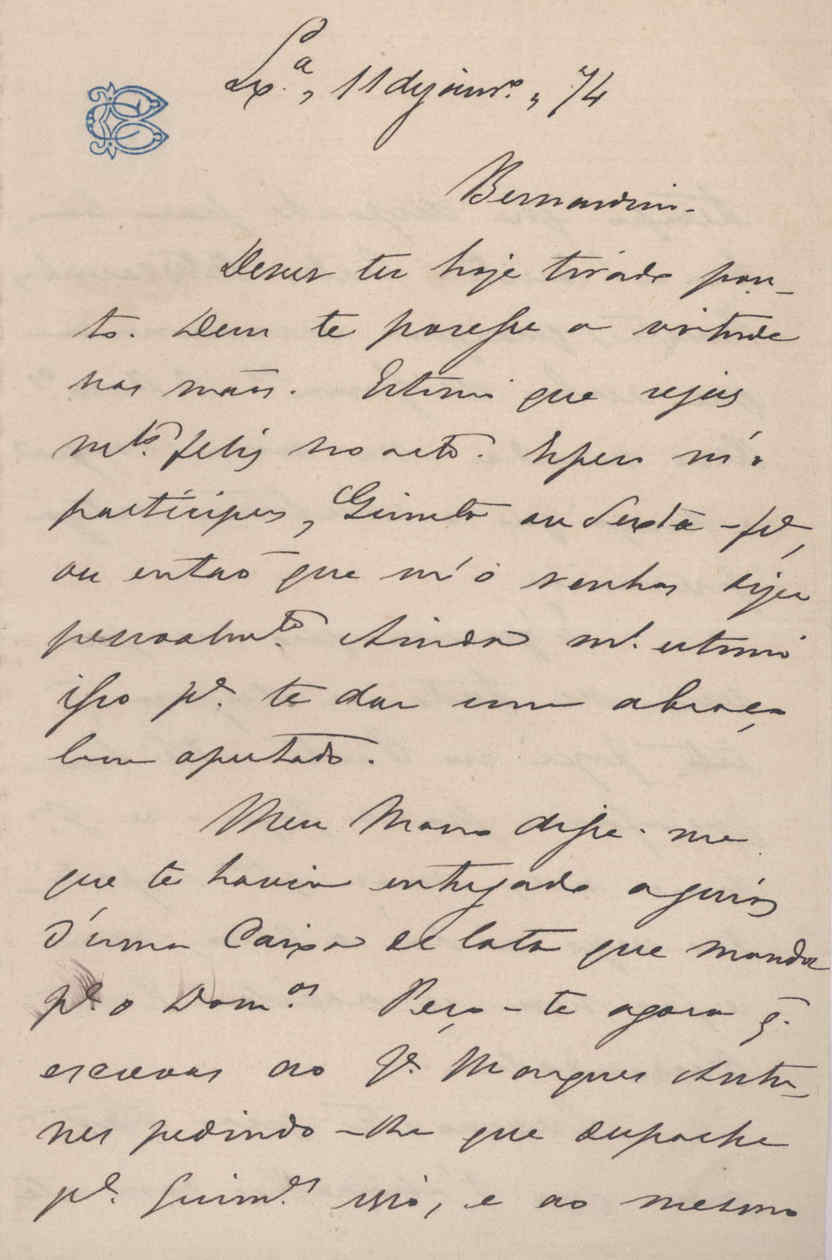 Lx.ª, 11 de janr.º, 74
Bernardino.
Deves ter hoje tirado pon-
to. Deus te posesse a virtude
nas mãos. Estimei que sejas
mt.º feliz no acto. Espero m'o
participes, Quinta ou Sexta-fr.ª,
ou então que m'o venhas dizer
pessoalm.te Ainda m.to estimo
isso p.ª te dar um abraço
bem apertado.
Meu Mano disse-me
que te havia entregado a guia
d'uma Caixa de lata que manda
p.ª o Dom.os Peço-te agora q.
escrevas ao Jº. Marques Antu-
nes pedindo-lhe que despache
p.ª Guim.es isso, e ao mesmo